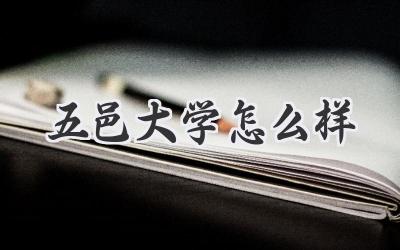 五邑大学怎么样